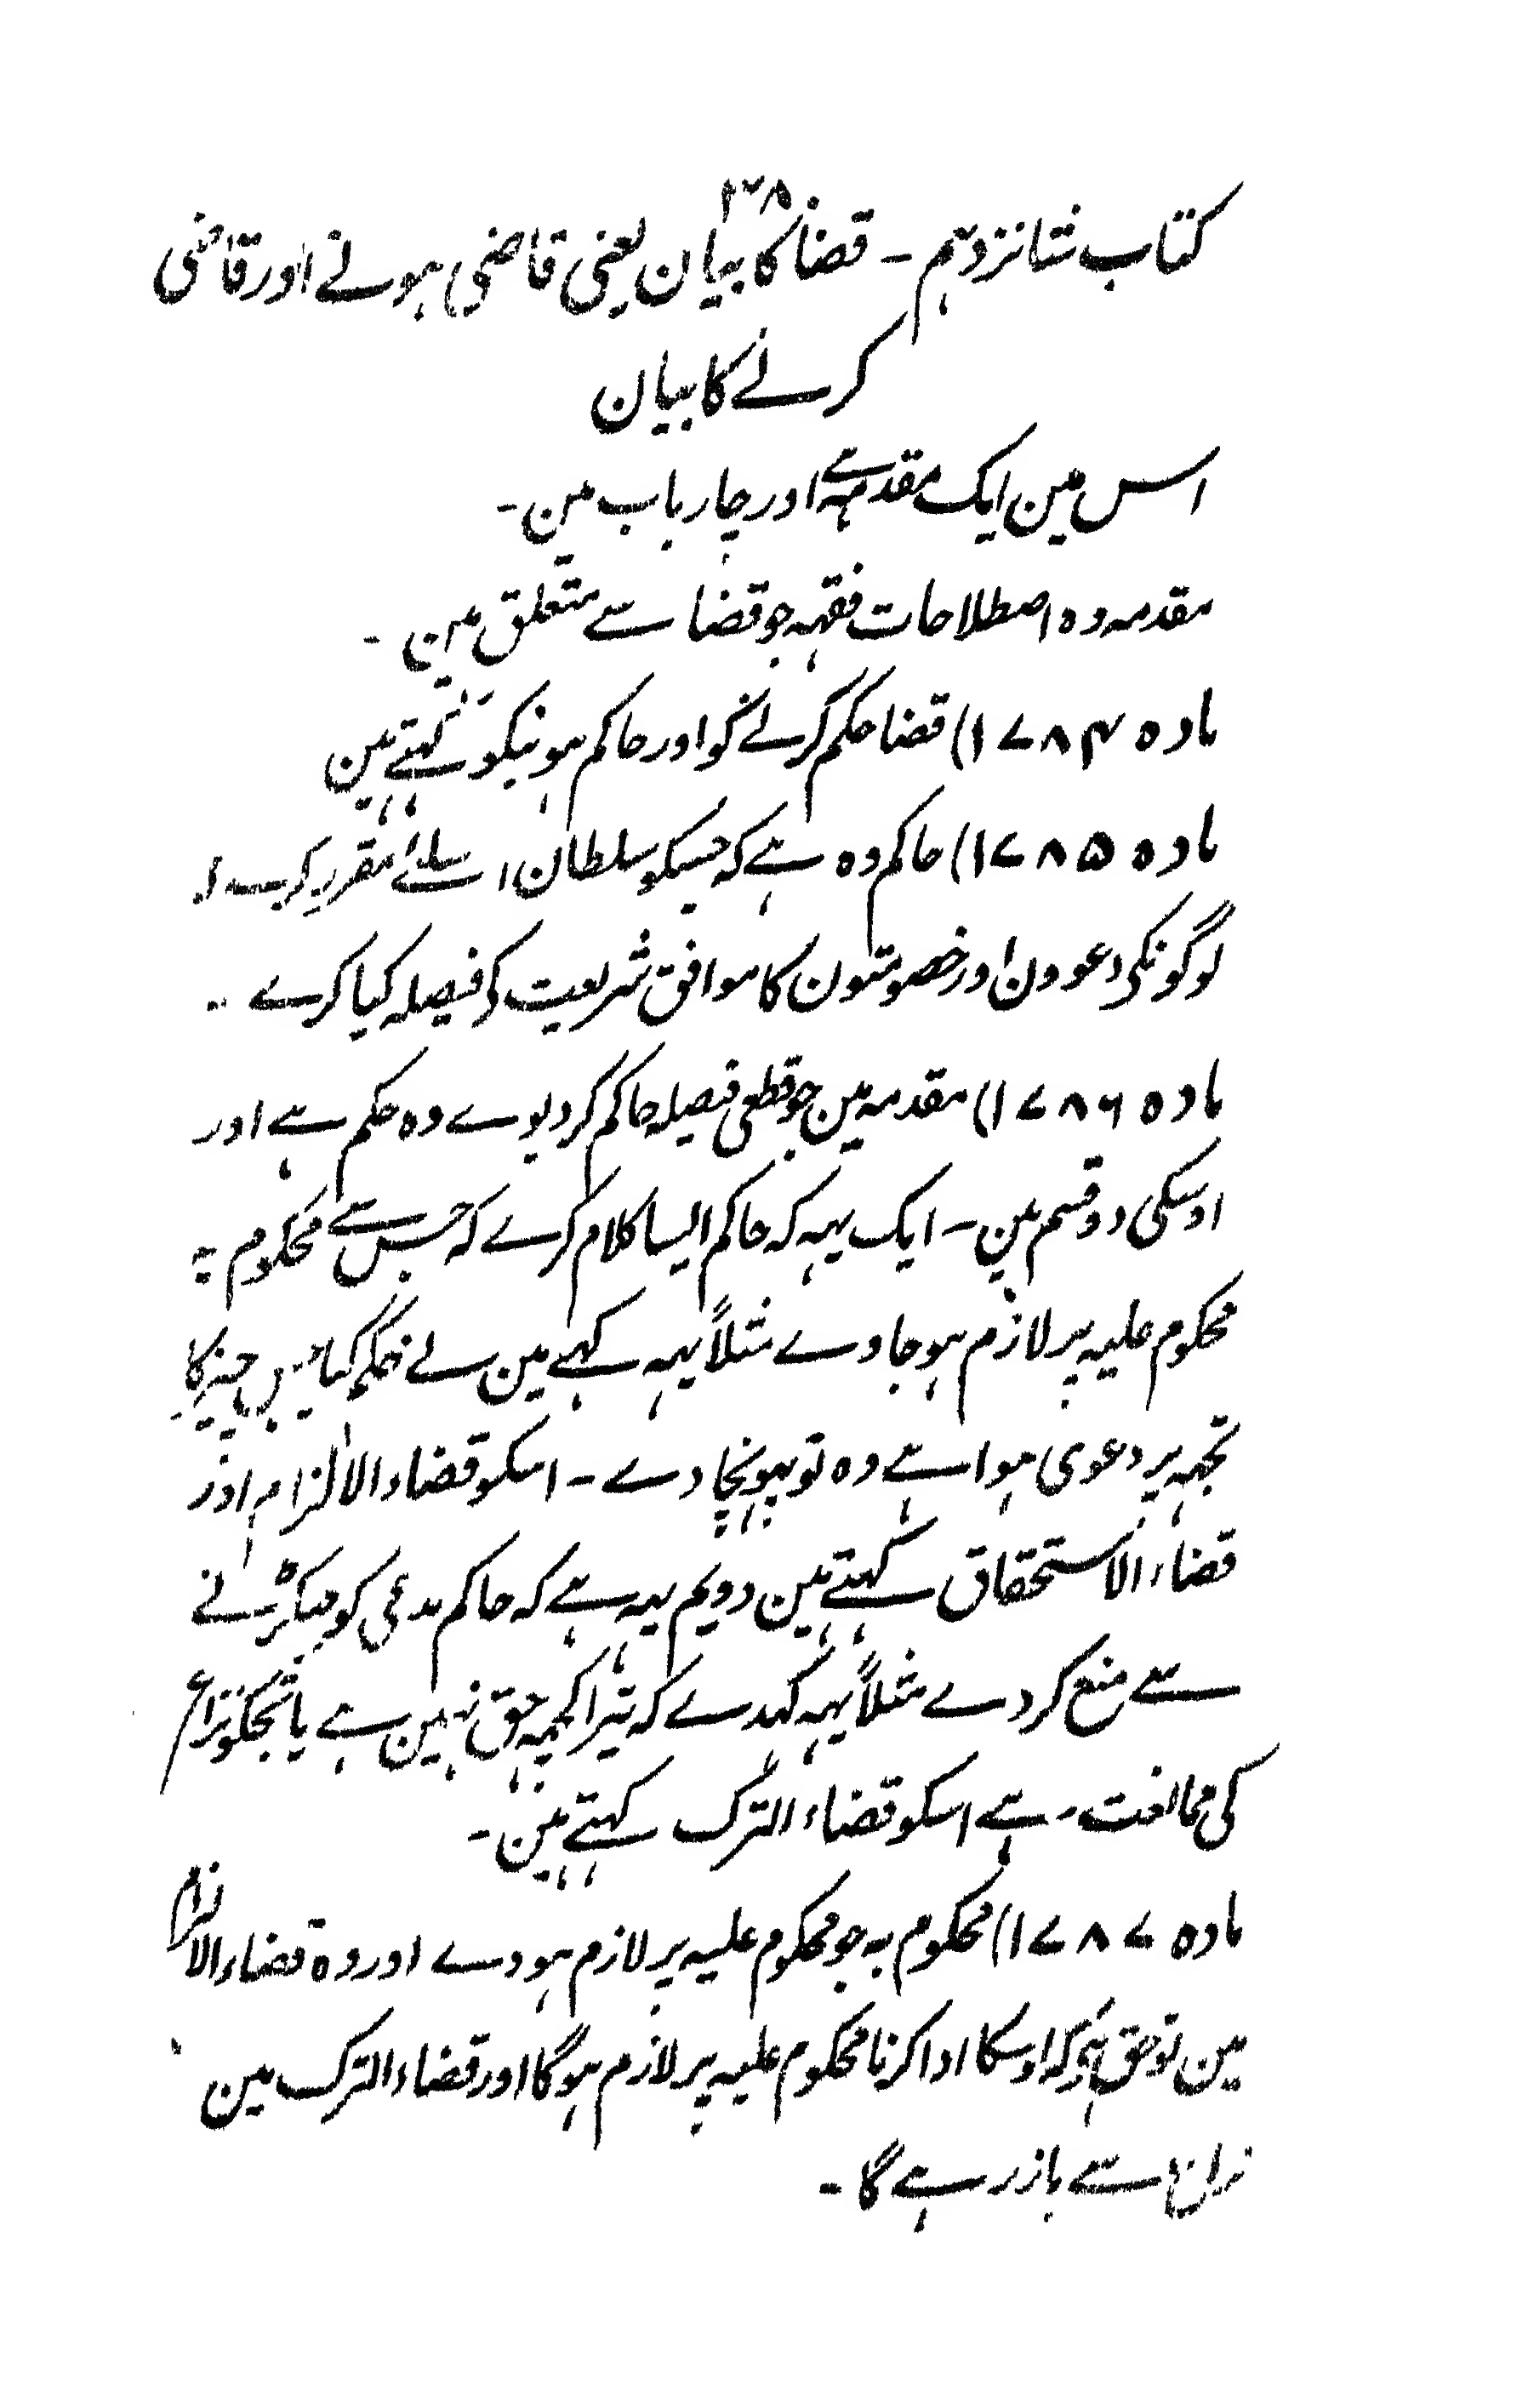 ۳۷۸
کتاب شانزدہم - قضا کا بیان یعنی قاضی ہونے اور قاضی
کرنے کا بیان
اس مین ایک مقدمہ ہے اور چار باب ہین -
مقدمہ وہ اصطلاحات فقہیہ جو قضا سے متعلق ہین -
مادہ ۱۷۸۴) قضا حکم کرنے کو اور حاکم ہونیکو کہتے ہین
مادہ ۱۷۸۵) حاکم وہ ہے کہ جسکو سلطان اسلئے مقرر کرے
لوگونکی دعوون اور خصومتون کا موافق شریعت کی فیصلہ کیا کرے -
مادہ ۱۷۸۶) مقدمہ مین جو قطعی فیصلہ حاکم کر دیوے وہ حکم ہے اور
اوسکی دو قسم ہین - ایک یہہ کہ حاکم ایسا کلام کرے کہ جس سے محکوم بہ
محکوم علیہ پر لازم ہو جاوے مثلاً یہہ کہے مین نے حکم کیا جس چیز کا
تجہہ پر دعوی ہوا ہے وہ تو پہونچا دے - اسکو قضاء الالزام اور
قضاء الاستحقاق کہتے ہین دویم یہہ ہے کہ حاکم مدعی کو جہگڑنے
سے منع کر دے مثلاً یہہ کہدے کہ تیرا کچہہ حق نہین ہے یا تجکو نزاع
کی ممانعت ہے اسکو قضاء الترک کہتے ہین -
مادہ ۱۷۸۷) محکوم بہ جو محکوم علیہ پر لازم ہووے اور وہ قضاء الالزام
مین تو حق ہے کہ اوسکا ادا کرنا محکوم علیہ پر لازم ہوگا اور قضاء الترک مین
نزاع سے باز رہے گا -